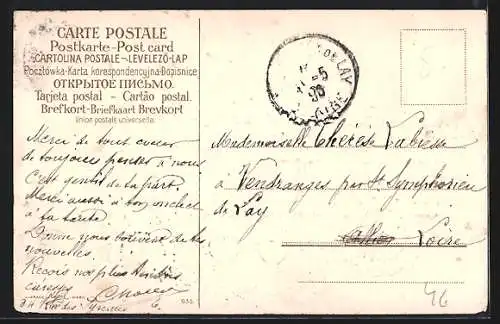 CARTE POSTALE
Postkarte-Post card
CARTOLINA POSTALE-LEVELEZŐ-LAP
Pocztówka-Karta korespondencyjna-Dopisnice
ОТКРЫТОЕ ПИСЬМО.
Tarjeta postal - Cartão postal.
Brefkort-Briefkaart Brevkort
Union postale universelle.
Merci de tout coeur
de toujours penser à nous
C'est gentil de ta part.
Merci aussi à ton oncle et
à ta tante
nous souvent de tes
nouvelles.
Reçois nos plus tendres
caresses
935
LAY
5
LOIRE
Mademoiselle Thérèse
à Vendranges par St Symphorien
de Lay
Allier Loire